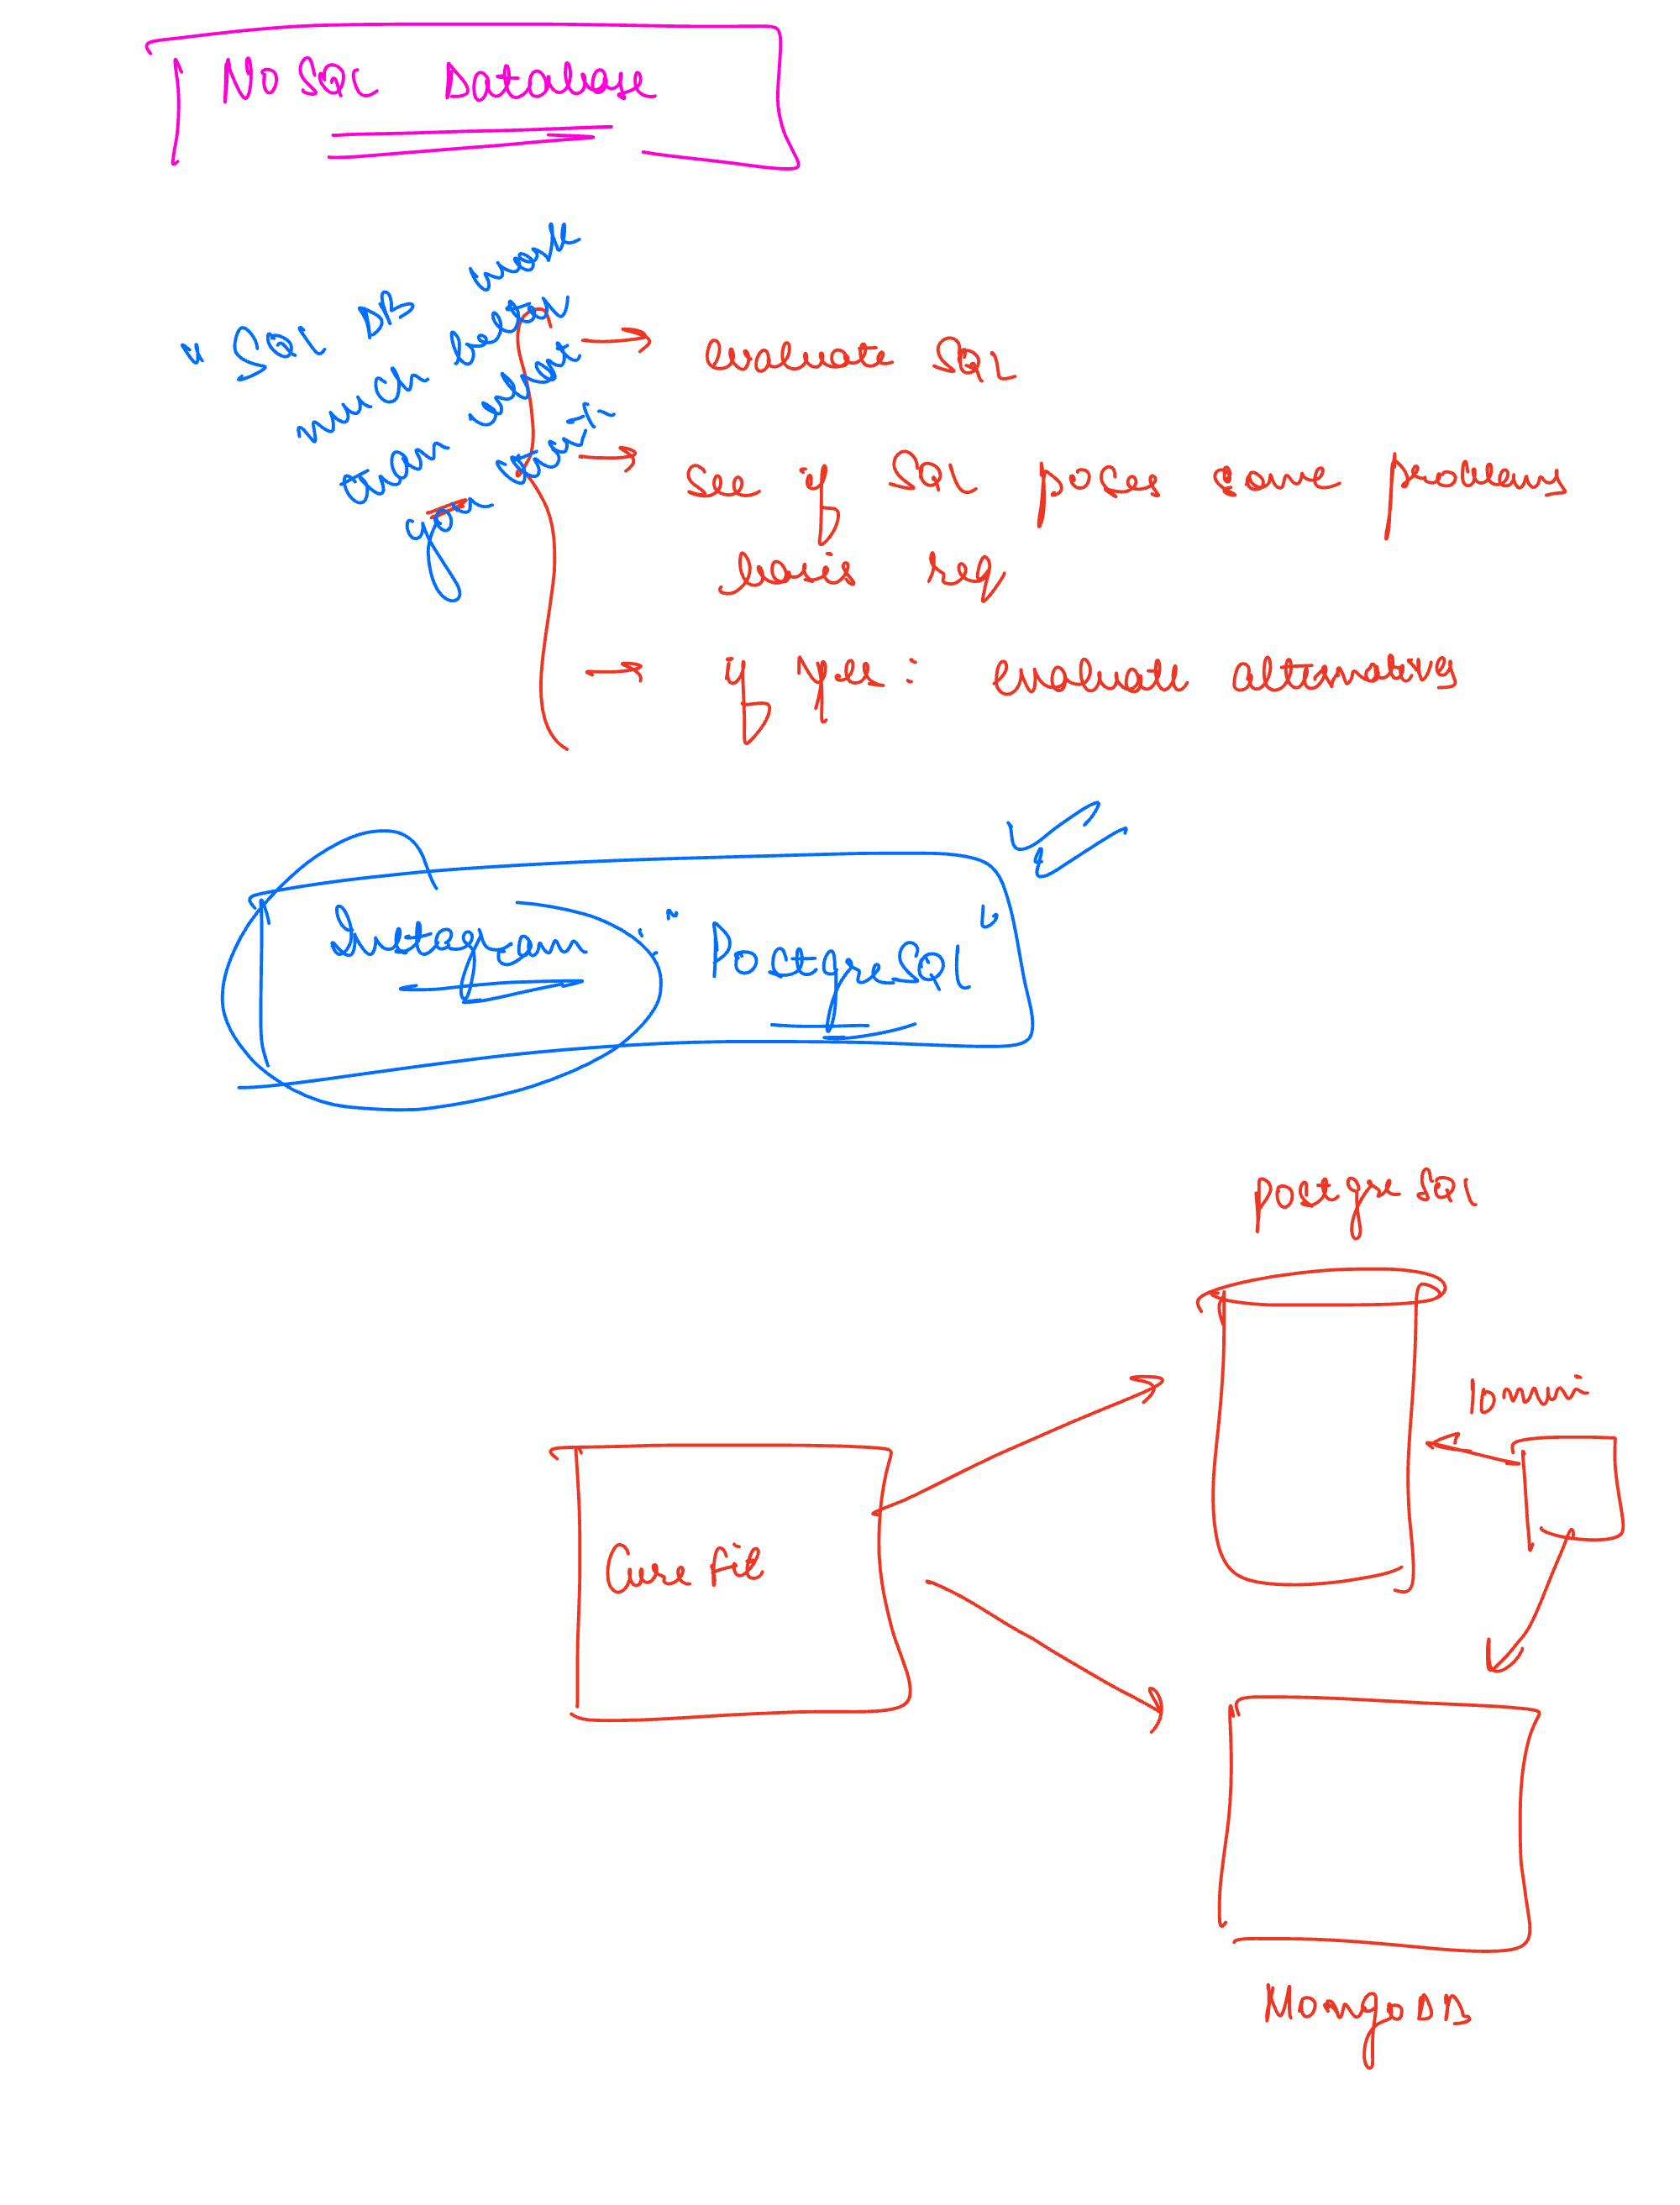 NoSQL Database
"SQL DB work
much better
than what
you think"
evaluate SQL
see if SQL poses some problems
basis req
if yes: evaluate alternatives
Instagram : "PostgreSQL"
PostgreSQL
10 min
Curefit
MongoDB